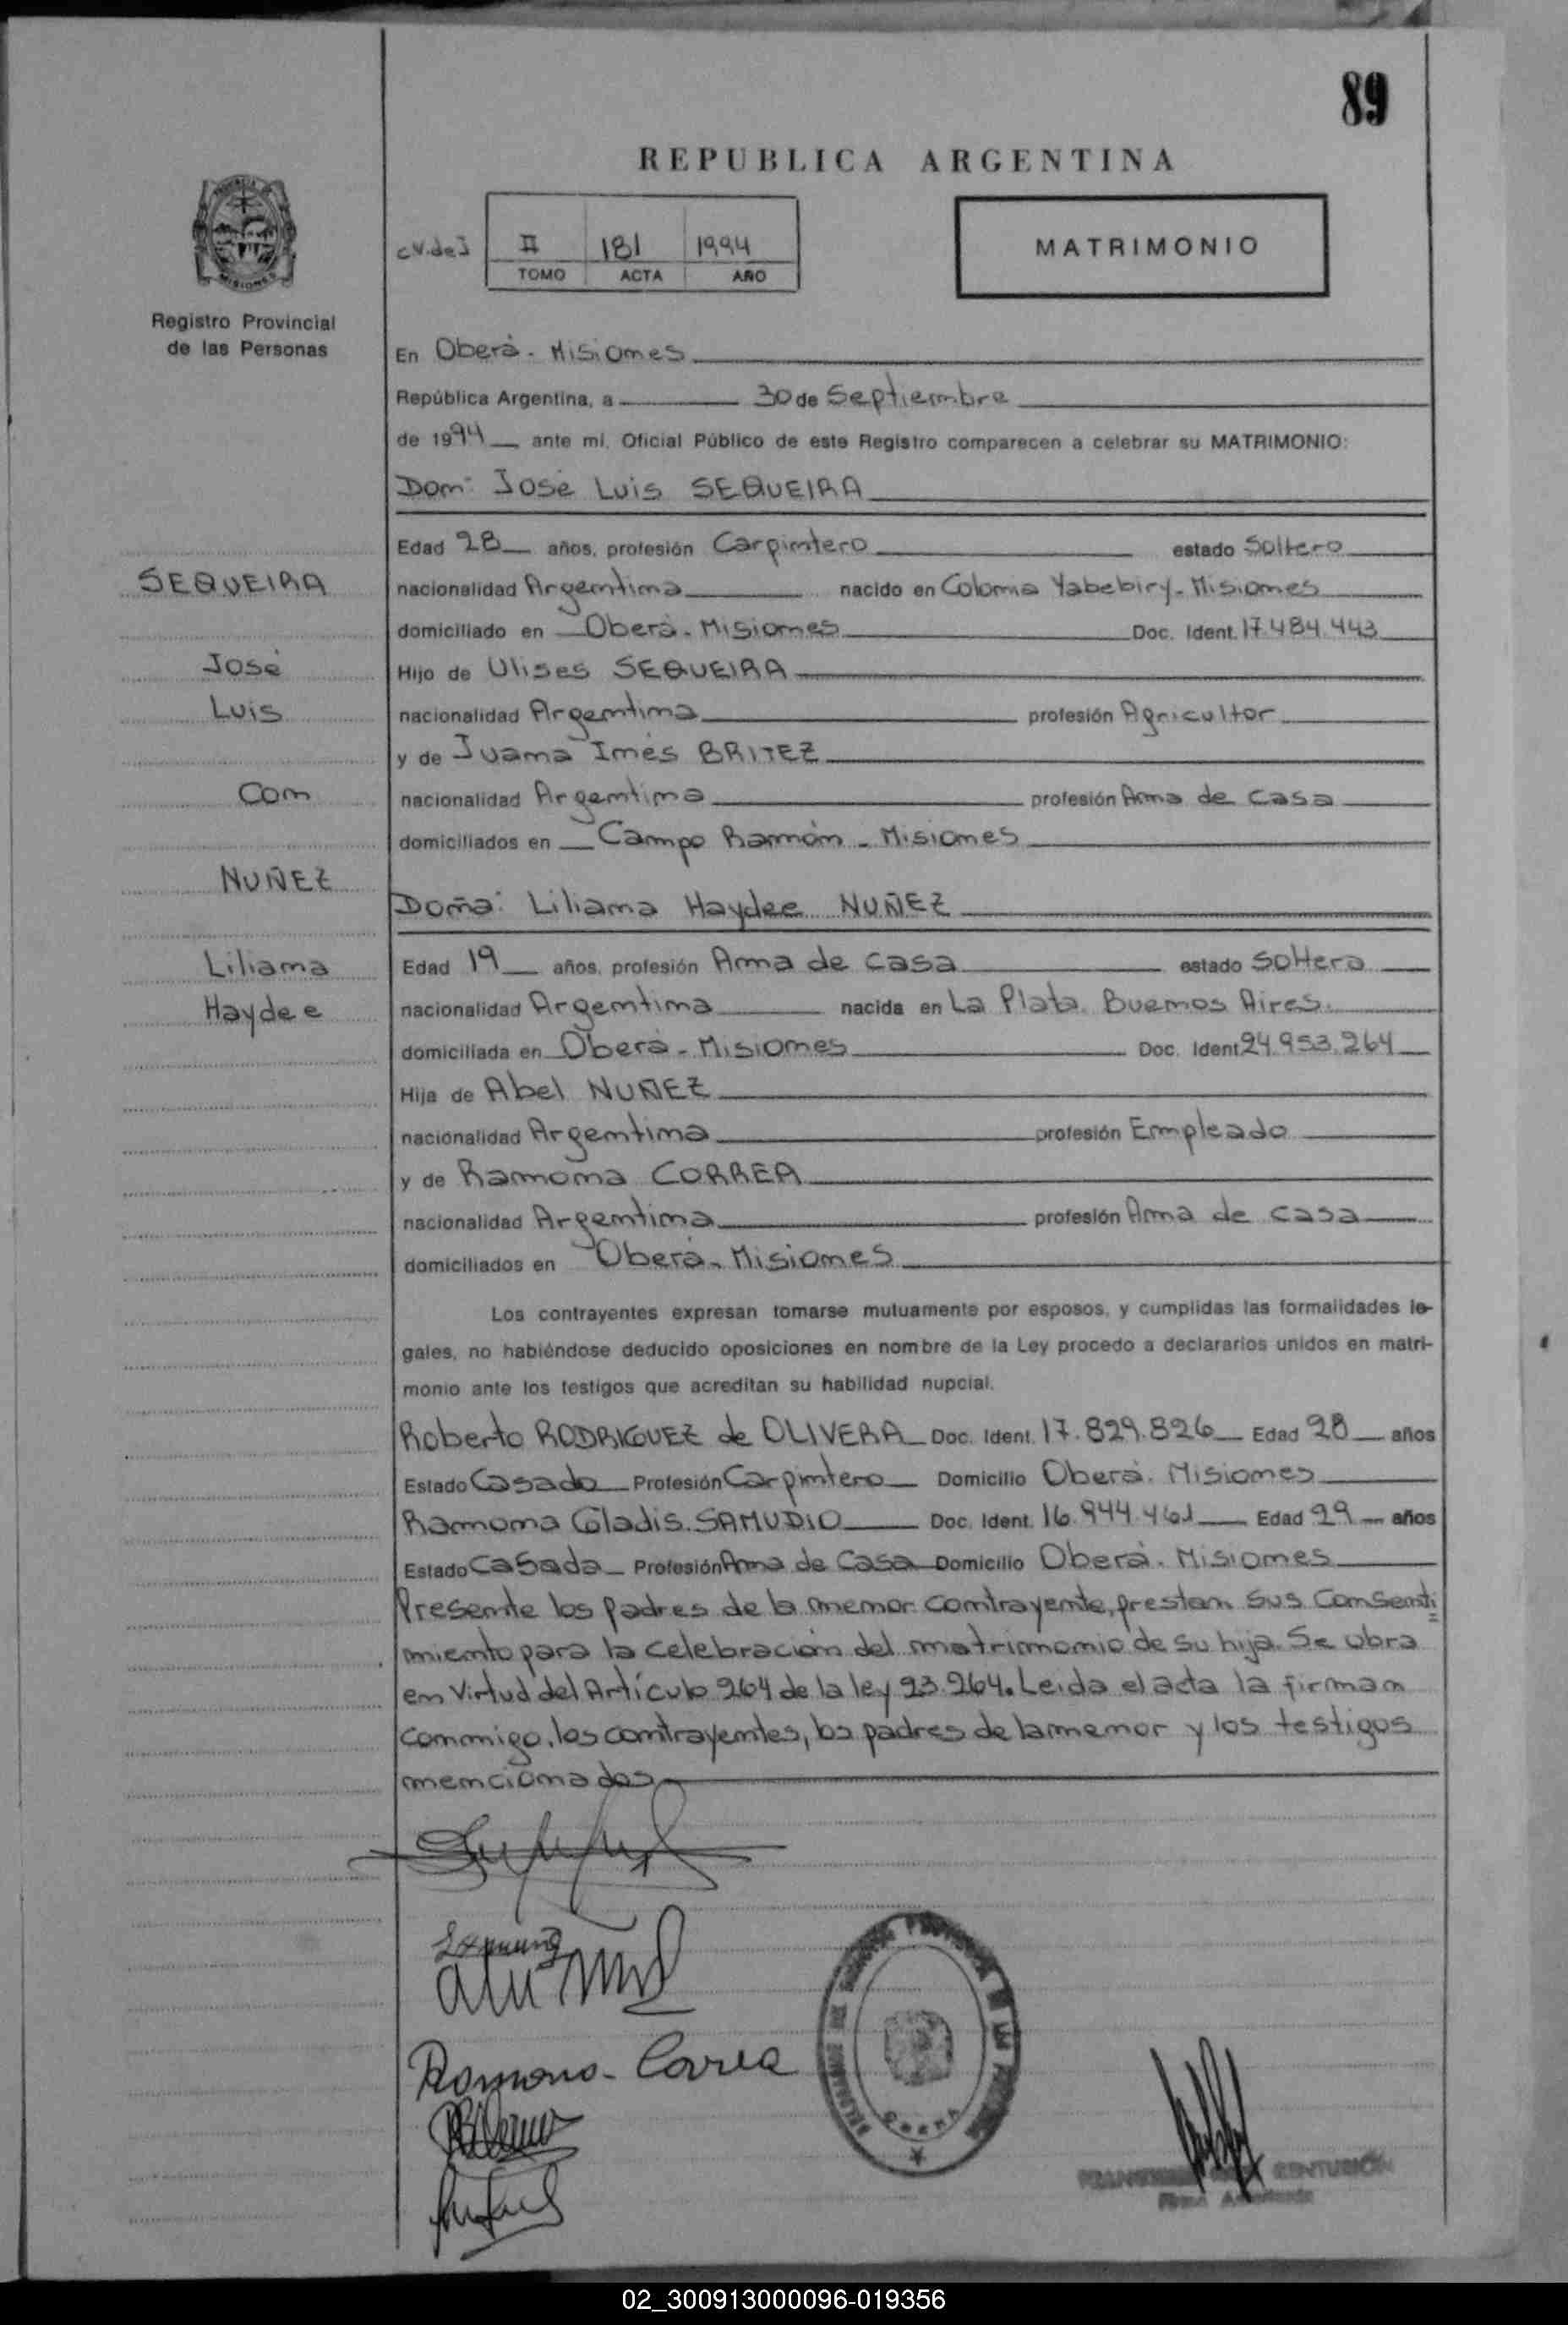 89
REPUBLICA ARGENTINA
c.v.deJ II 181 1994
TOMO ACTA AÑO
MATRIMONIO
MISIONES
Registro Provincial
de las Personas
En Oberá - Misiones
República Argentina, a 30 de Septiembre
de 1994 ante mí, Oficial Público de este Registro comparecen a celebrar su MATRIMONIO:
Don: José Luis SEQUEIRA
Edad 28 años, profesión Carpintero estado Soltero
SEQUEIRA
nacionalidad Argentina nacido en Colonia Yabebiry - Misiones
domiciliado en Oberá - Misiones Doc. Ident. 17.484.443
José
Hijo de Ulises SEQUEIRA
Luis
nacionalidad Argentina profesión Agricultor
y de Juana Inés BRITEZ
Con
nacionalidad Argentina profesión Ama de casa
domiciliados en Campo Ramón - Misiones
NUÑEZ
Doña: Liliana Haydee NUÑEZ
Liliana
Edad 19 años, profesión Ama de casa estado Soltera
Haydee
nacionalidad Argentina nacida en La Plata. Buenos Aires.
domiciliada en Oberá - Misiones Doc. Ident 24.953.264
Hija de Abel NUÑEZ
nacionalidad Argentina profesión Empleado
y de Ramona CORREA
nacionalidad Argentina profesión Ama de casa
domiciliados en Oberá - Misiones
Los contrayentes expresan tomarse mutuamente por esposos, y cumplidas las formalidades le-
gales, no habiéndose deducido oposiciones en nombre de la Ley procedo a declararlos unidos en matri-
monio ante los testigos que acreditan su habilidad nupcial.
Roberto RODRIGUEZ de OLIVERA Doc. Ident. 17.829.826 Edad 28 años
Estado Casado Profesión Carpintero Domicilio Oberá. Misiones
Ramona Gladis. SAMUDIO Doc. Ident. 16.944.461 Edad 29 años
Estado Casada Profesión Ama de Casa Domicilio Oberá. Misiones
Presente los padres de la menor contrayente, prestan sus Consenti=
miento para la celebración del matrimonio de su hija. Se obra
en Virtud del Artículo 264 de la ley 23.264. Leida el acta la firman
conmigo, los contrayentes, los padres de la menor y los testigos
mencionados
Ramona Correa
OBERA
CENTURIÓN
02_300913000096-019356